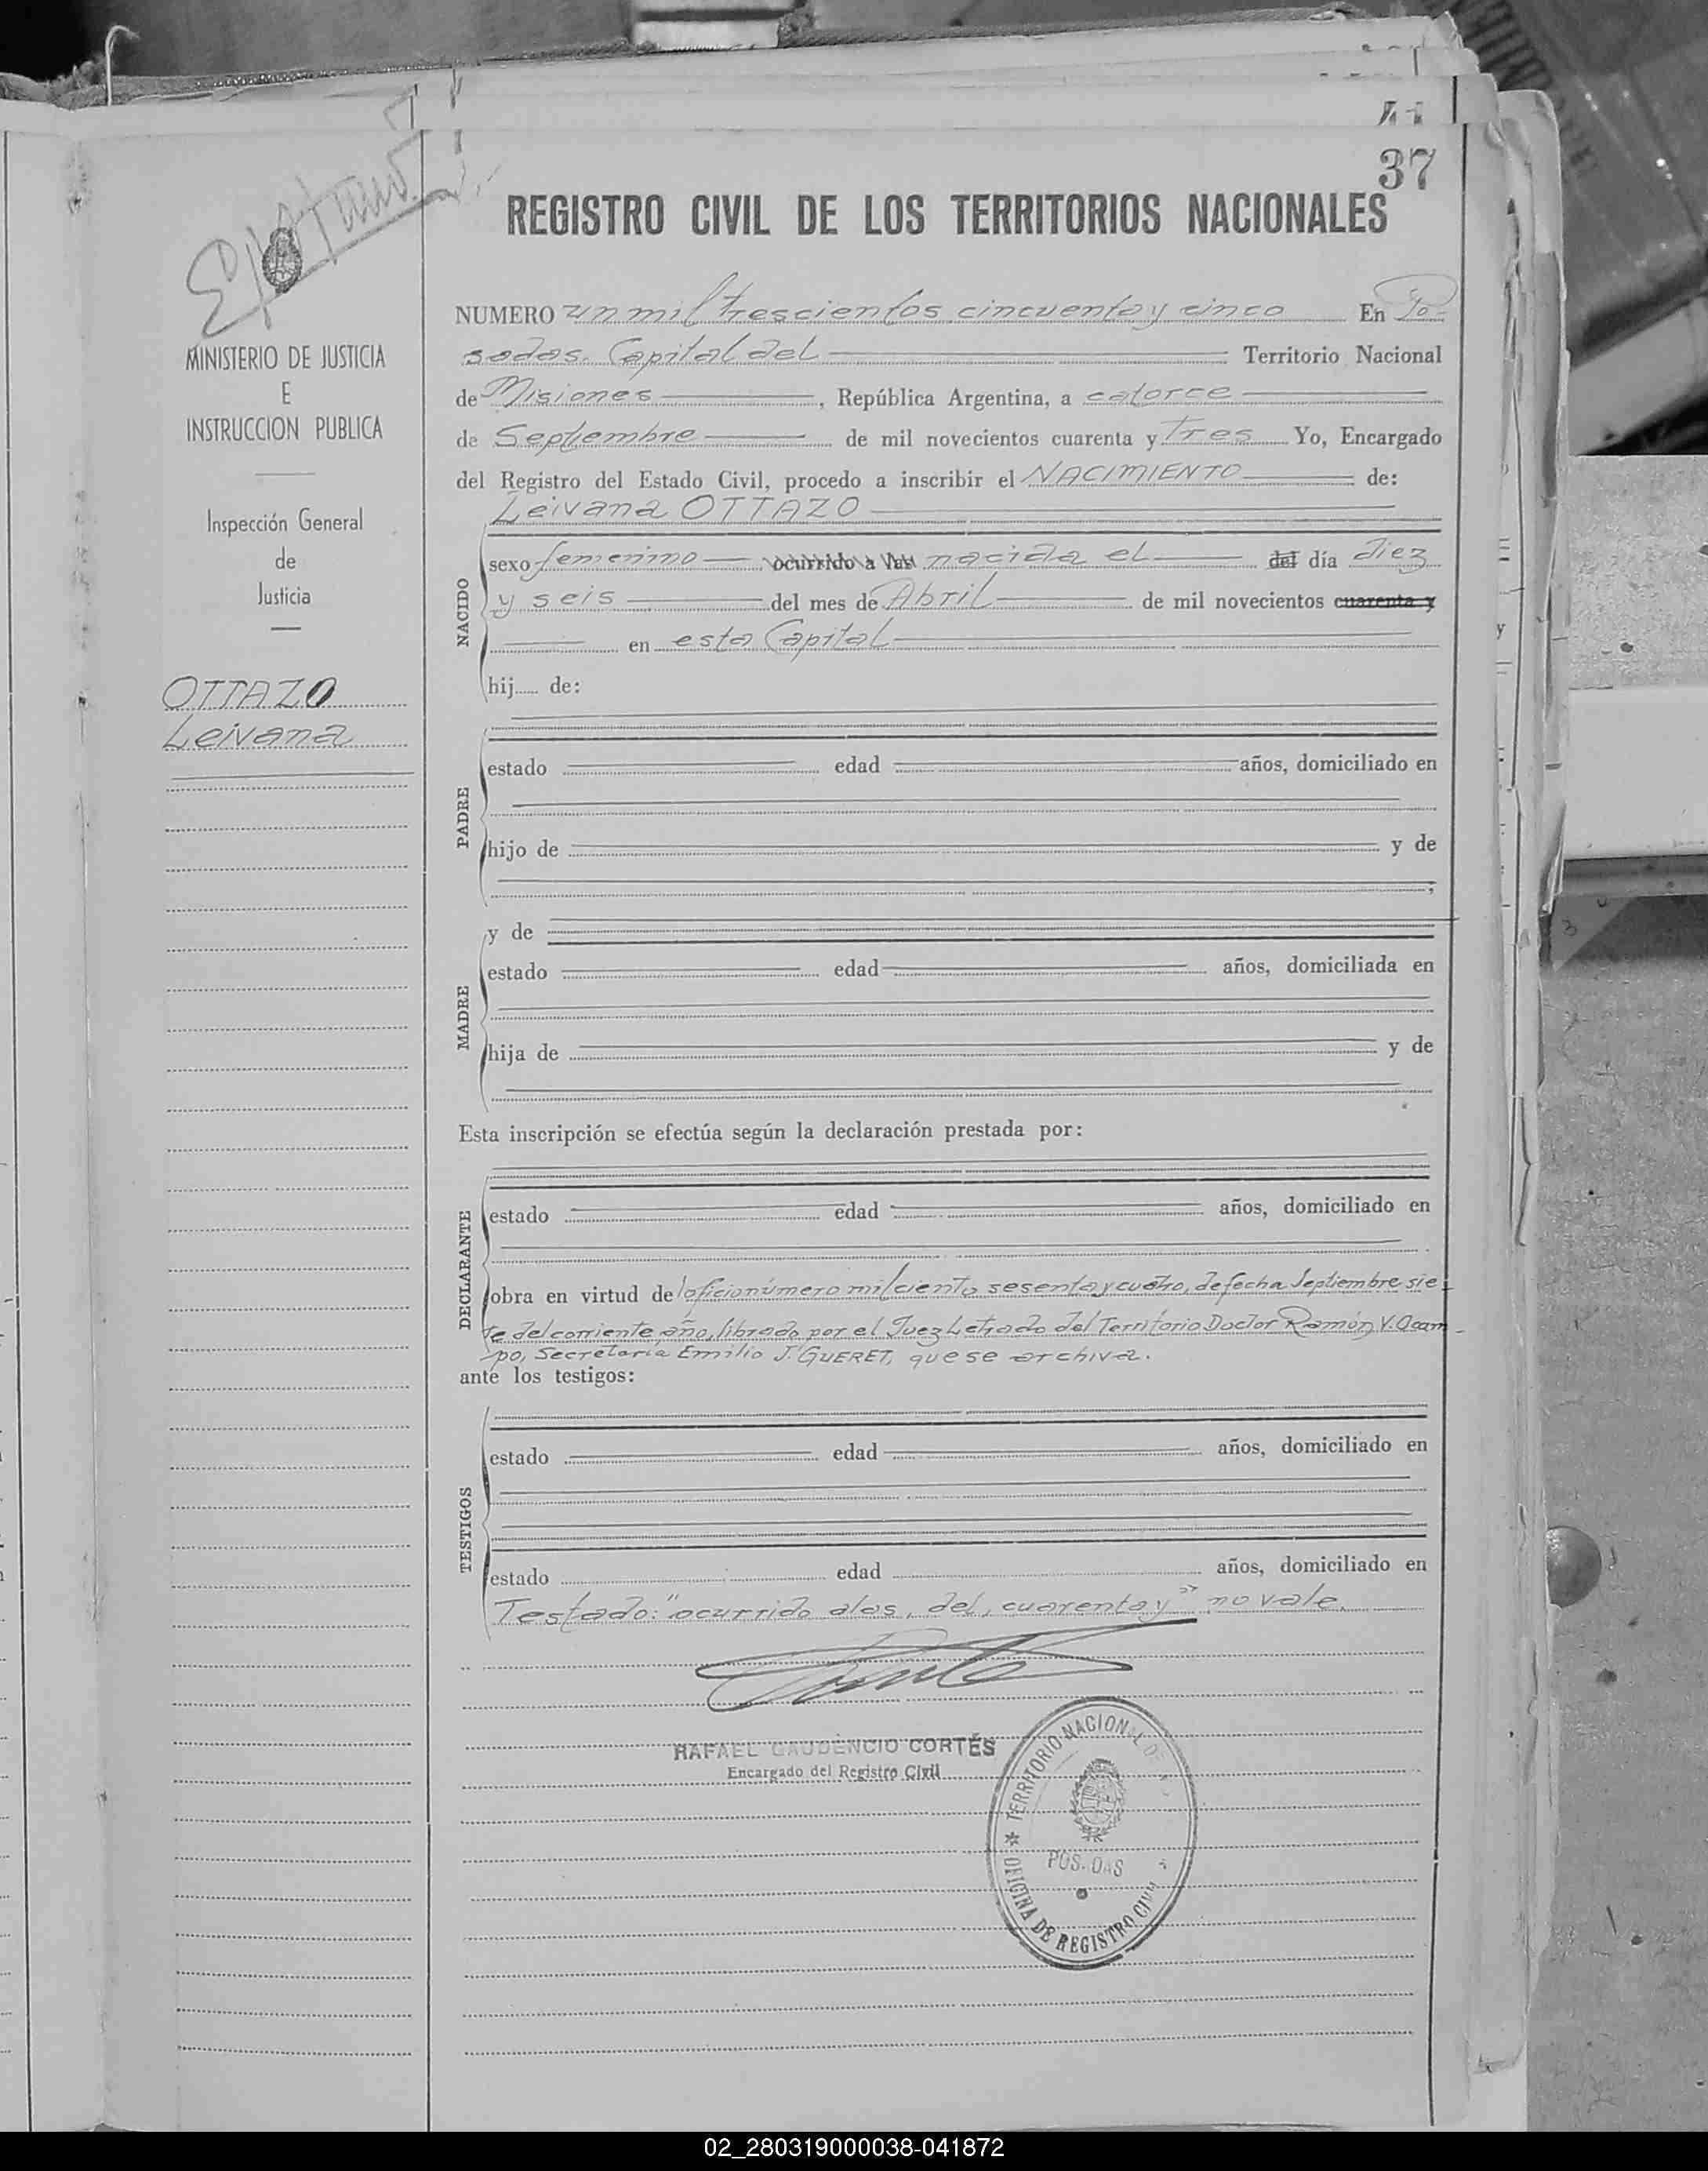 41
37
REGISTRO CIVIL DE LOS TERRITORIOS NACIONALES
MINISTERIO DE JUSTICIA
E
INSTRUCCION PUBLICA
Inspección General
de
Justicia
OTTAZO
Leivana
NUMERO un mil trescientos cincuenta y cinco En Po-
sadas. Capital del Territorio Nacional
de Misiones, República Argentina, a catorce
de Septiembre de mil novecientos cuarenta y tres Yo, Encargado
del Registro del Estado Civil, procedo a inscribir el NACIMIENTO de:
Leivana OTTAZO
NACIDO
sexo femenino ocurrido a las nacida el del día diez
y seis del mes de Abril de mil novecientos cuarenta y
en esta Capital
hij de:
PADRE
estado edad años, domiciliado en
hijo de y de
;
MADRE
y de
estado edad años, domiciliada en
hija de y de
Esta inscripción se efectúa según la declaración prestada por:
DECLARANTE
estado edad años, domiciliado en
obra en virtud del oficio número mil ciento sesenta y cuatro, de fecha Septiembre sie-
te del corriente año, librado por el Juez Letrado del Territorio Doctor Ramón V. Ocam-
po, Secretaría Emilio J. GUERET, que se archiva.
ante los testigos:
TESTIGOS
estado edad años, domiciliado en
estado edad años, domiciliado en
Testado: "ocurrido a las, del, cuarenta y" no vale.
RAFAEL GAUDENCIO CORTÉS
Encargado del Registro Civil
TERRITORIO NACIONAL DE
POSADAS
OFICINA DE REGISTRO CIVIL
02_280319000038-041872